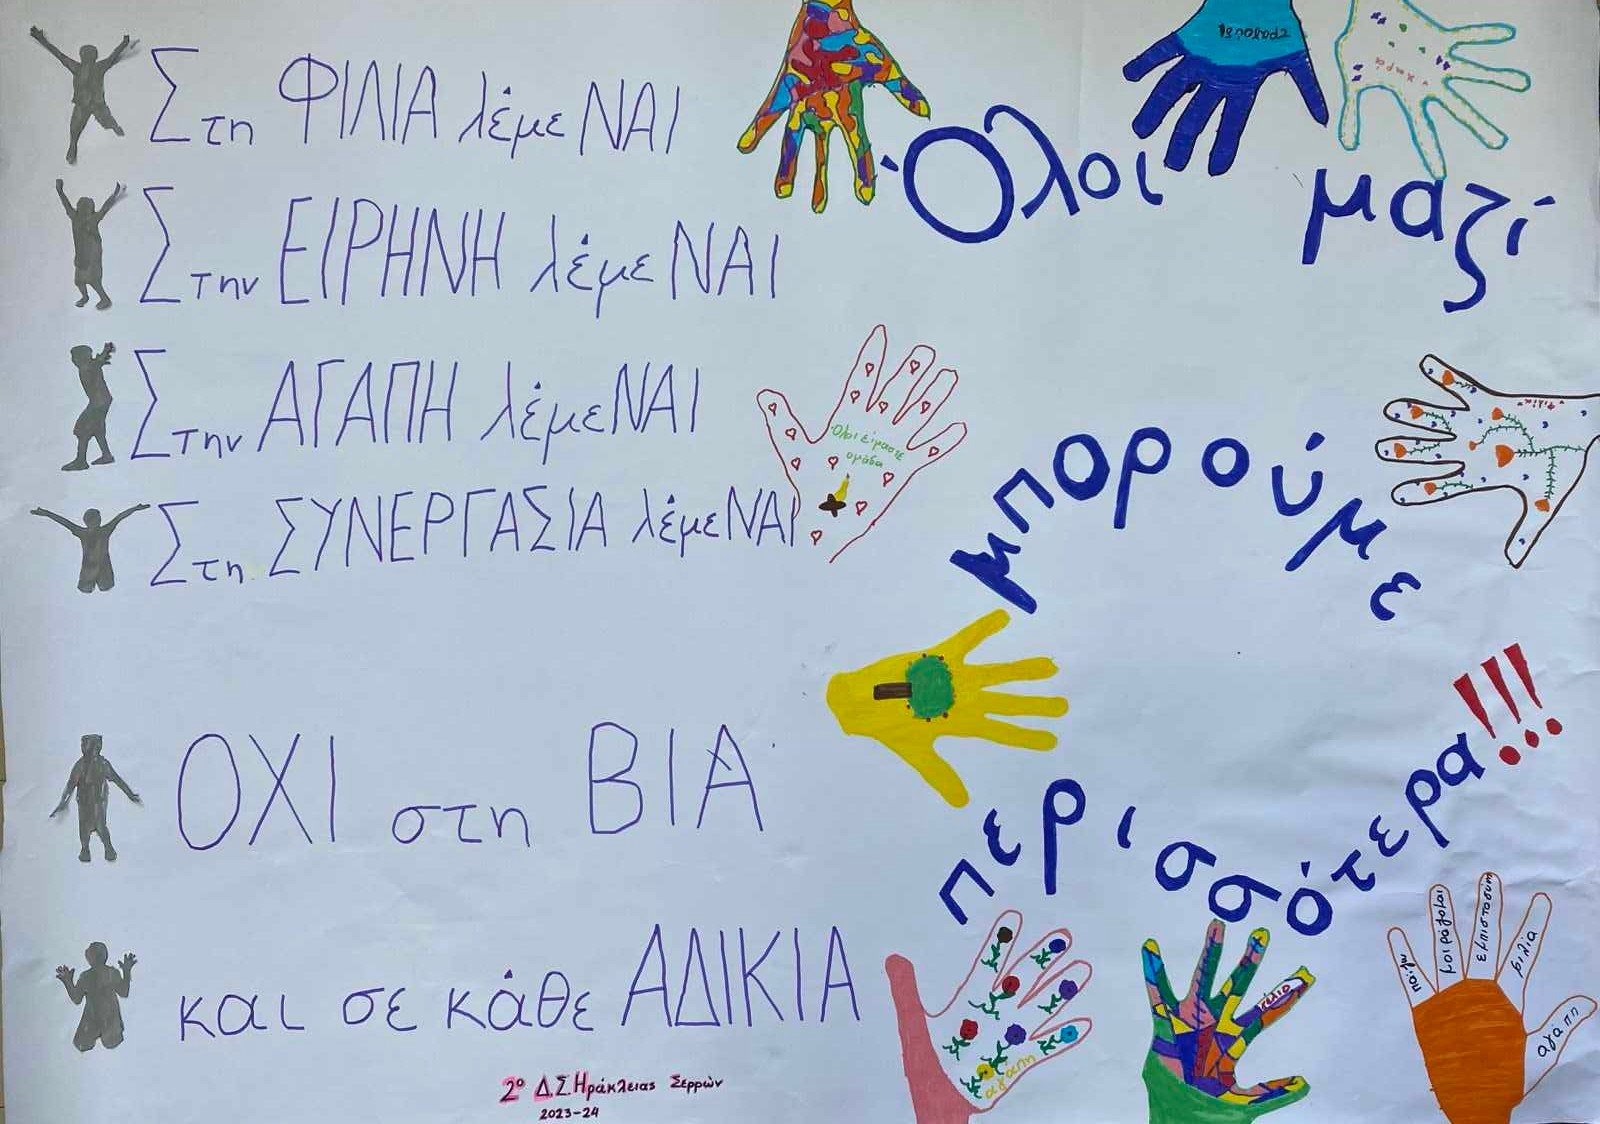 Στη ΦΙΛΙΑ λέμε ΝΑΙ
Στην ΕΙΡΗΝΗ λέμε ΝΑΙ
Στην ΑΓΑΠΗ λέμε ΝΑΙ
Στη ΣΥΝΕΡΓΑΣΙΑ λέμε ΝΑΙ
ΟΧΙ στη ΒΙΑ
και σε κάθε ΑΔΙΚΙΑ
2ο Δ.Σ. Ηράκλειας Σερρών
2023-24
Όλοι μαζί
μπορούμε
περισσότερα!!!
τραγούδι
"χαρά
Όλοι είμαστε
ομάδα
"φιλία"
αγάπη
γέλιο
παίζω
μοιράζομαι
εμπιστοσύνη
φιλία
αγάπη